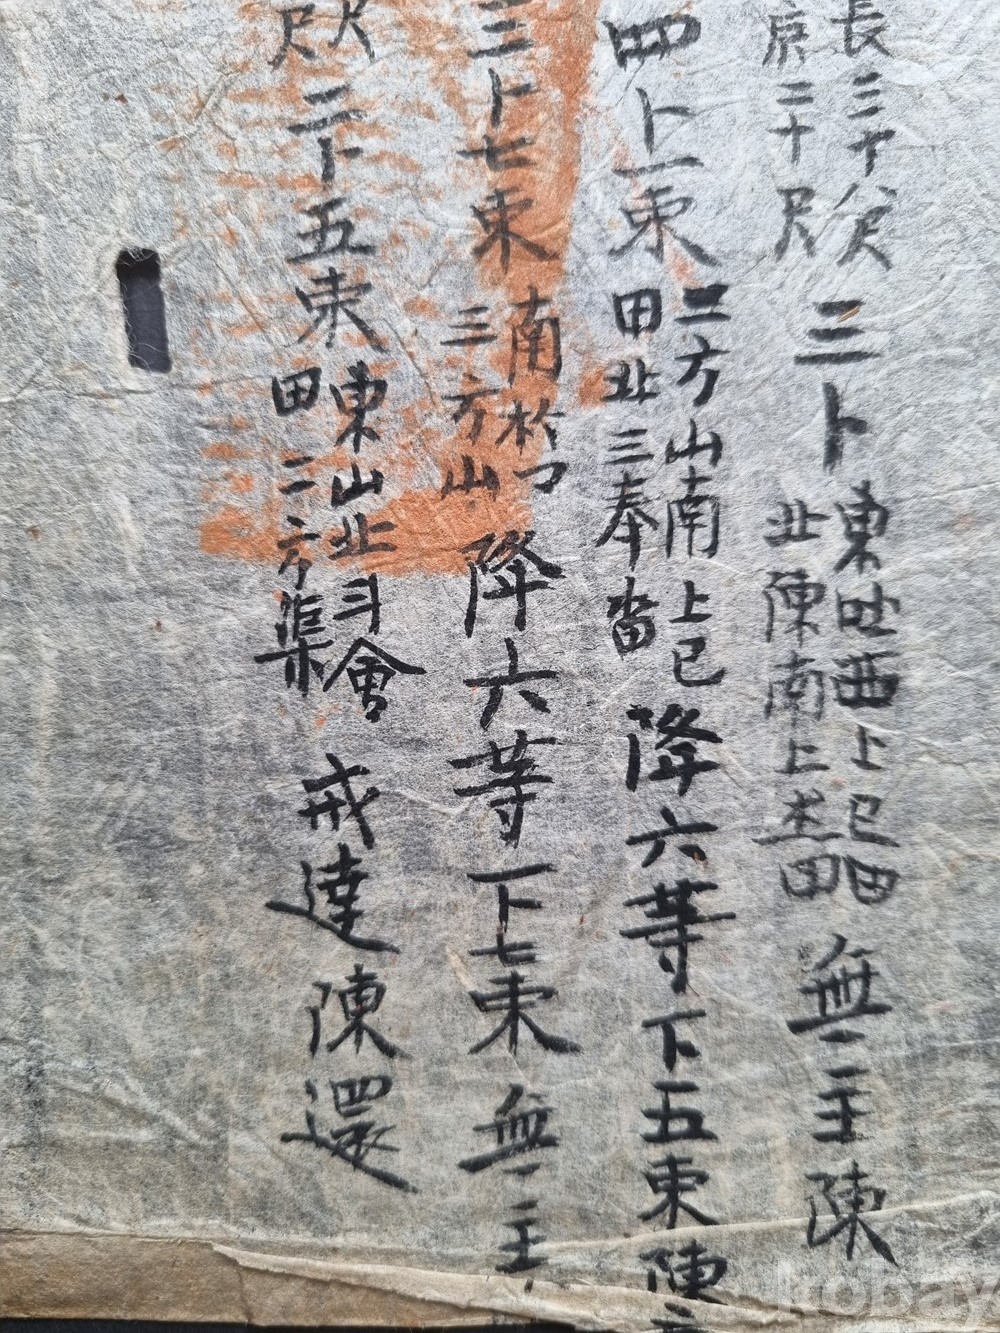 長三十八尺
広二十尺
三卜
東吐西上已田
北陳南上本田
無主陳
四卜一束
二方山南上已
田北三奉畓
降六等下五束陳
三卜七束
南於口
三方山
降六等下七束無主
尺
尺
二卜五束
東山北斗會
田二方渠
戒達陳還
kobay